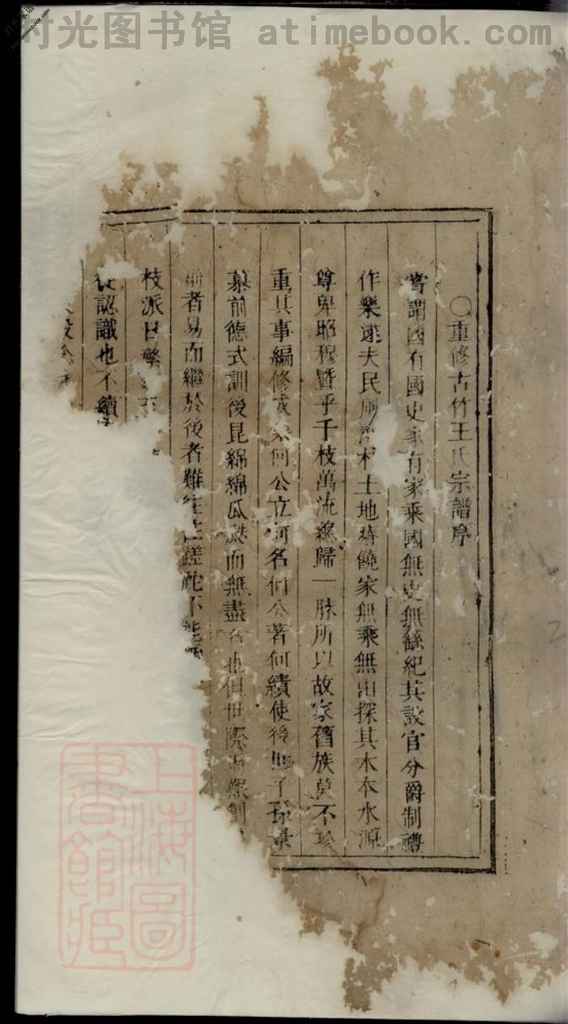 时光图书馆 atimebook.com
○重修古竹王氏宗譜序
嘗謂國有國史家有家乘國無史無繇紀其設官分爵制禮
作樂逮夫民風村土地饒家無乘無由探其木本水源
尊卑昭穆暨乎千枝萬流總歸一脉所以故家舊族莫不
重其事編修何公立何名何公著何績使後世子孫
前德式訓後昆綿綿瓜瓞而無盡也但世際
前者易而繼於後者難往往蹉跎不能
枝派日繁
認識也不續
上海圖書館藏